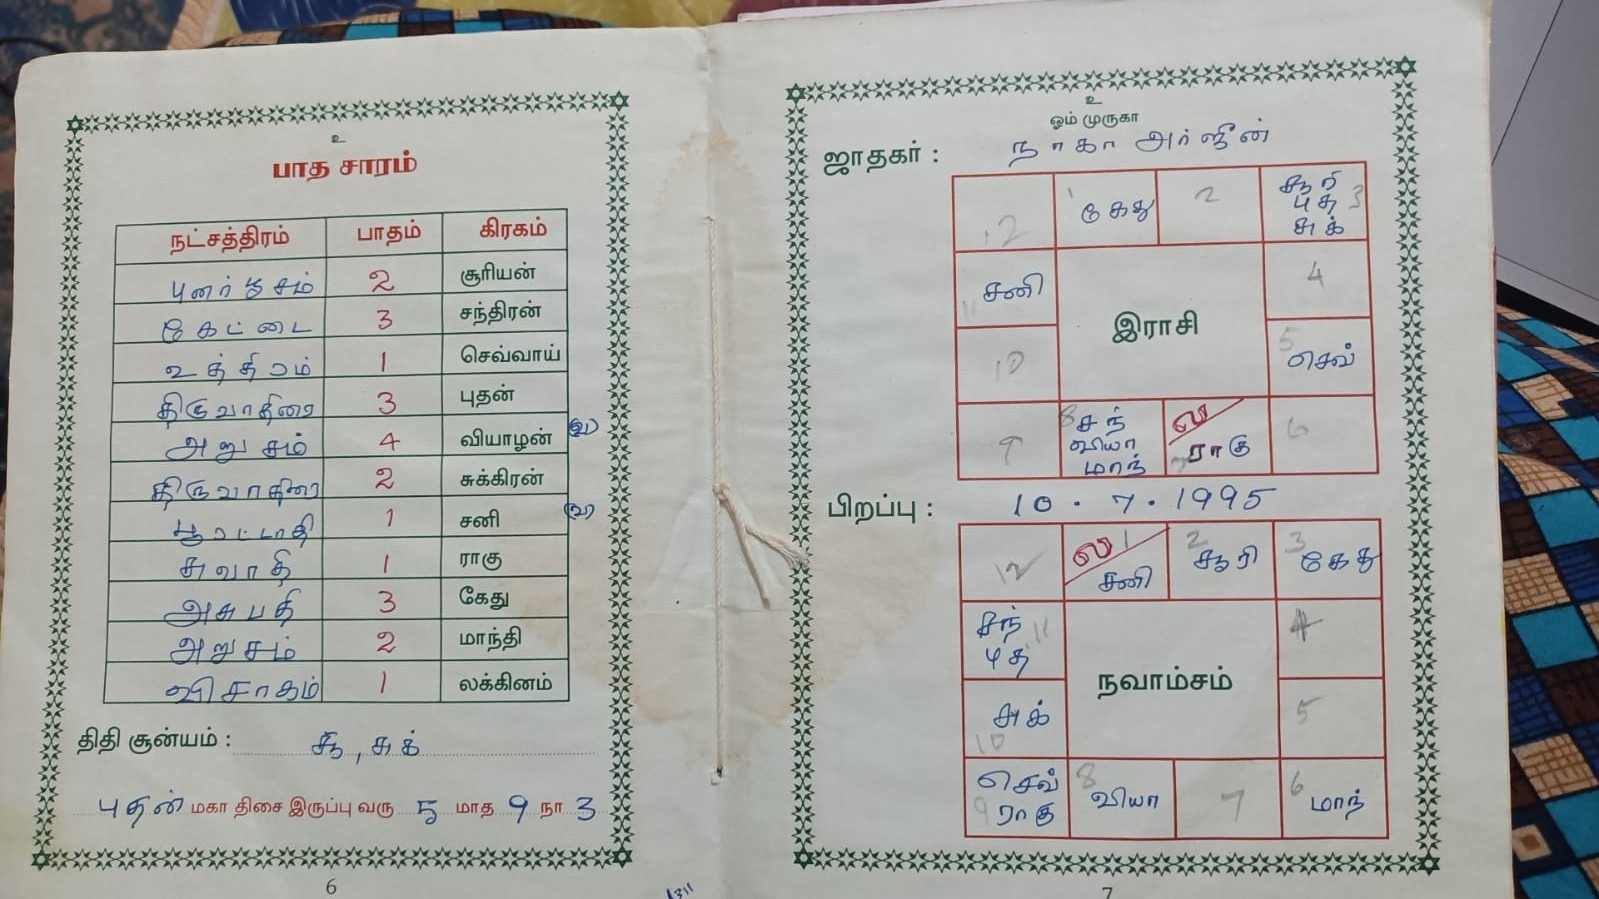 உ
பாத சாரம்
நட்சத்திரம் பாதம் கிரகம்
புனர்பூசம் 2 சூரியன்
கேட்டை 3 சந்திரன்
உத்திரம் 1 செவ்வாய்
திருவாதிரை 3 புதன்
அனுசம் 4 வியாழன் (வ)
திருவாதிரை 2 சுக்கிரன்
பூரட்டாதி 1 சனி (வ)
சுவாதி 1 ராகு
அசுபதி 3 கேது
அனுசம் 2 மாந்தி
விசாகம் 1 லக்கினம்
திதி சூன்யம் : சூ, சுக்
புதன் மகா திசை இருப்பு வரு 5 மாத 9 நா 3
6
உ
ஓம் முருகா
ஜாதகர் : நாகா அர்ஜீன்
12 1 கேது 2 சூரி 3
புத
சுக்
11 சனி 4
இராசி
10 5 செவ்
9 8 சந் ல 6
வியா 7 ராகு
மாந்
பிறப்பு : 10 . 7 . 1995
12 ல 1 2 சூரி 3 கேது
சனி
சந் 11 4
புத
நவாம்சம்
சுக் 10 5
செவ் 8 வியா 7 6 மாந்
9 ராகு
7